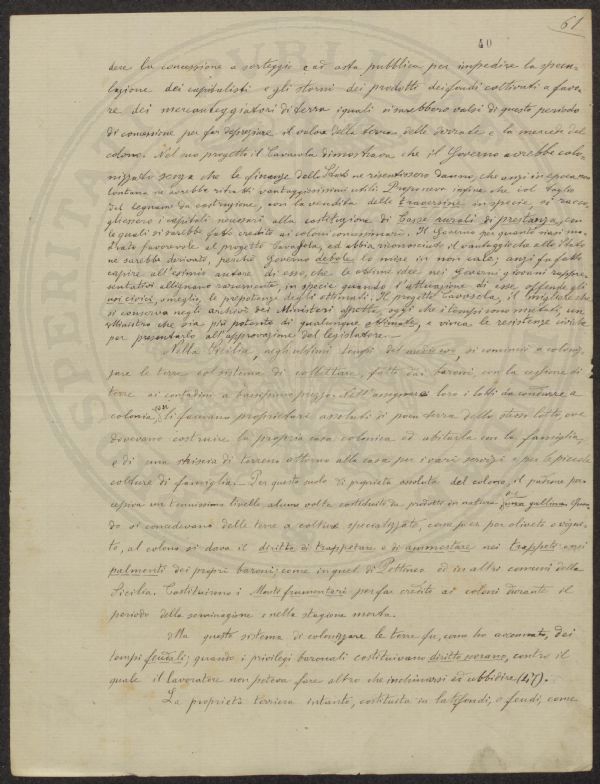 61
40
dere la concessione a sorteggio e ad asta pubblica per impedire la specu-
lazione dei capitalisti e gli storni dei prodotti dei fondi coltivati a favo-
re dei mercanteggiatori di terra i quali si sarebbero valsi di questo periodo
di concessione per far deprezzare il valore della terra, delle derrate e la mercede del
colono. Nel suo progetto il dimostrava che il Governo avrebbe colo-
nizzato senza che le finanze dello Stato ne risentissero danno, che anzi in epoca non
lontana ne avrebbe ritratti vantaggiosissimi utili. Proponeva infine che col taglio
del legname da costruzione, con la vendita delle traversine in specie, si racco-
gliessero i capitali necessari alla costituzione di Casse rurali di prestanza, con
le quali si sarebbe fatto credito ai coloni concessionari. Il Governo per quanto siasi mo-
strato favorevole al progetto, ed abbia riconosciuto il vantaggio che allo Stato
ne sarebbe derivato, perché Governo debole lo mise in non cale; anzi fu fatto
capire all'esimio autore di esso, che le ottime idee nei Governi giovani rappre-
sentativi allignano raramente, in specie quando l'attuazione di esse offende gli
usi civici, o meglio, le prepotenze degli ottimati. Il progetto, il migliore che
si conserva negli archivi dei Ministeri aspetta, oggi che i tempi sono mutati, un
Ministro che sia più potente di qualunque ottimate, e vinca le resistenze
per presentarlo all'approvazione del legislatore.
Nella Sicilia, negli ultimi tempi del medioevo, si cominciò a coloniz-
zare le terre col sistema di collettare, fatto dai baroni, con la cessione di
terre ai contadini a bassissimo prezzo. Nell'assegnare loro i lotti da condurre a
colonia, li facevano proprietari assoluti di poca terra dello stesso lotto, ove
dovevano costruire la propria casa colonica ed abitarla con la famiglia,
e di una striscia di terreno attorno alla casa per i vari servizi e per le piccole
colture di famiglia. Per questo suolo di proprietà assoluta del colono, il padrone per-
cepiva un tenuissimo livello, alcune volte costituito da prodotto in natura o una gallina. Quan-
do si concedevano delle terre a colture specializzate, come p. es. per oliveto e vigne-
to, al colono si dava il diritto di trappetare e di ammostare nei trappeti e nei
palmenti dei propri baroni; come in quel di Pettineo ed in altri comuni della
Sicilia. Costituirono i Monti frumentari per far credito ai coloni durante il
periodo della seminagione e nella stagione morta.
Ma questo sistema di colonizzare le terre fu, come ho accennato, dei
tempi feudali; quando i privilegi baronali costituivano diritto sovrano, contro il
quale il lavoratore non poteva fare altro che inchinarsi ed ubbidire (47).
La proprietà terriera intanto, costituita in latifondi, o feudi, come